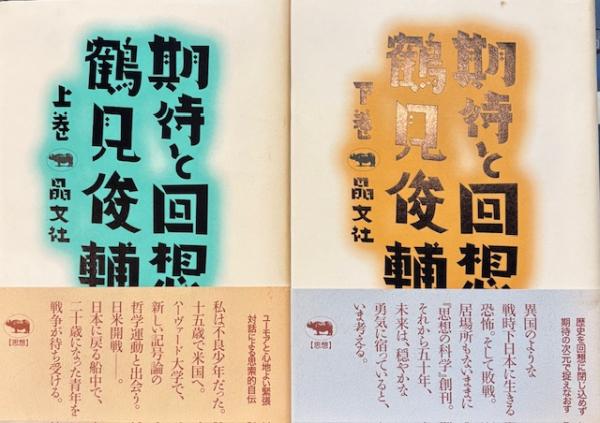 期待と回想
鶴見俊輔
上巻
晶文社
ユーモアと心地よい緊張
対話による思索的自伝
私は不良少年だった。
十五歳で米国へ。
ハーヴァード大学で、
新しい記号論の
哲学運動と出会う。
日米開戦――。
日本に戻る船中で、
二十歳になった青年を
戦争が待ち受ける。
【思想】
期待と回想
鶴見俊輔
下巻
晶文社
歴史を回想に閉じ込めず
期待の次元で捉えなおす
異国のような
戦時下日本に生きる
恐怖。そして敗戦。
居場所もないままに
『思想の科学』創刊。
それから五十年、
未来は、穏やかな
勇気に宿っていると、
いま考える。
【思想】